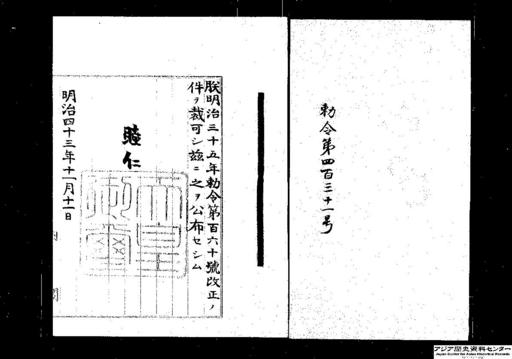 勅令第四百三十一号
朕明治三十五年勅令第百六十號改正ノ
件ヲ裁可シ茲ニ之ヲ公布セシム
睦仁
天皇
御璽
明治四十三年十一月十一日
内閣
アジア歴史資料センター
Japan Center for Asian Historical Records